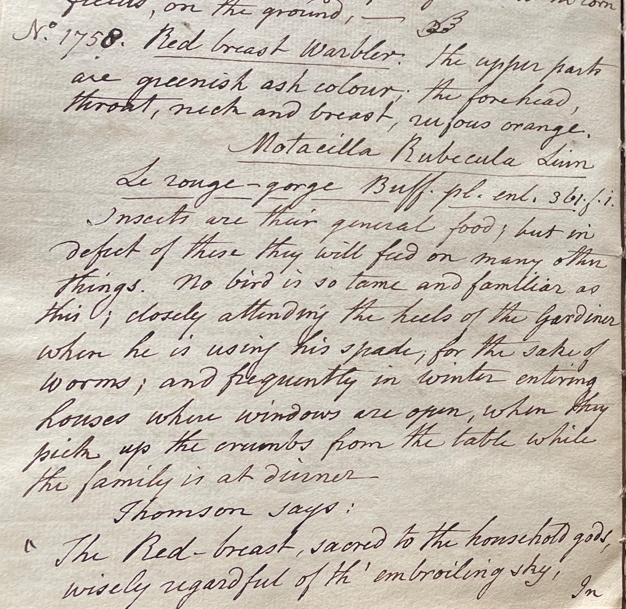 fields, on the ground, — B
No. 1758. Red breast Warbler. The upper parts
are greenish ash colour; the forehead,
throat, neck and breast, rufous orange.
Motacilla Rubecula Linn
Le rouge-gorge Buff. pl. enl. 361. f. 1.
Insects are their general food; but in
defect of these they will feed on many other
things. No bird is so tame and familiar as
this; closely attending the heels of the Gardiner
when he is using his spade, for the sake of
worms; and frequently in winter entering
houses where windows are open, when they
pick up the crumbs from the table while
the family is at dinner
Thomson says:
" The Red-breast, sacred to the household gods,
wisely regardful of th' embroiling sky,
In